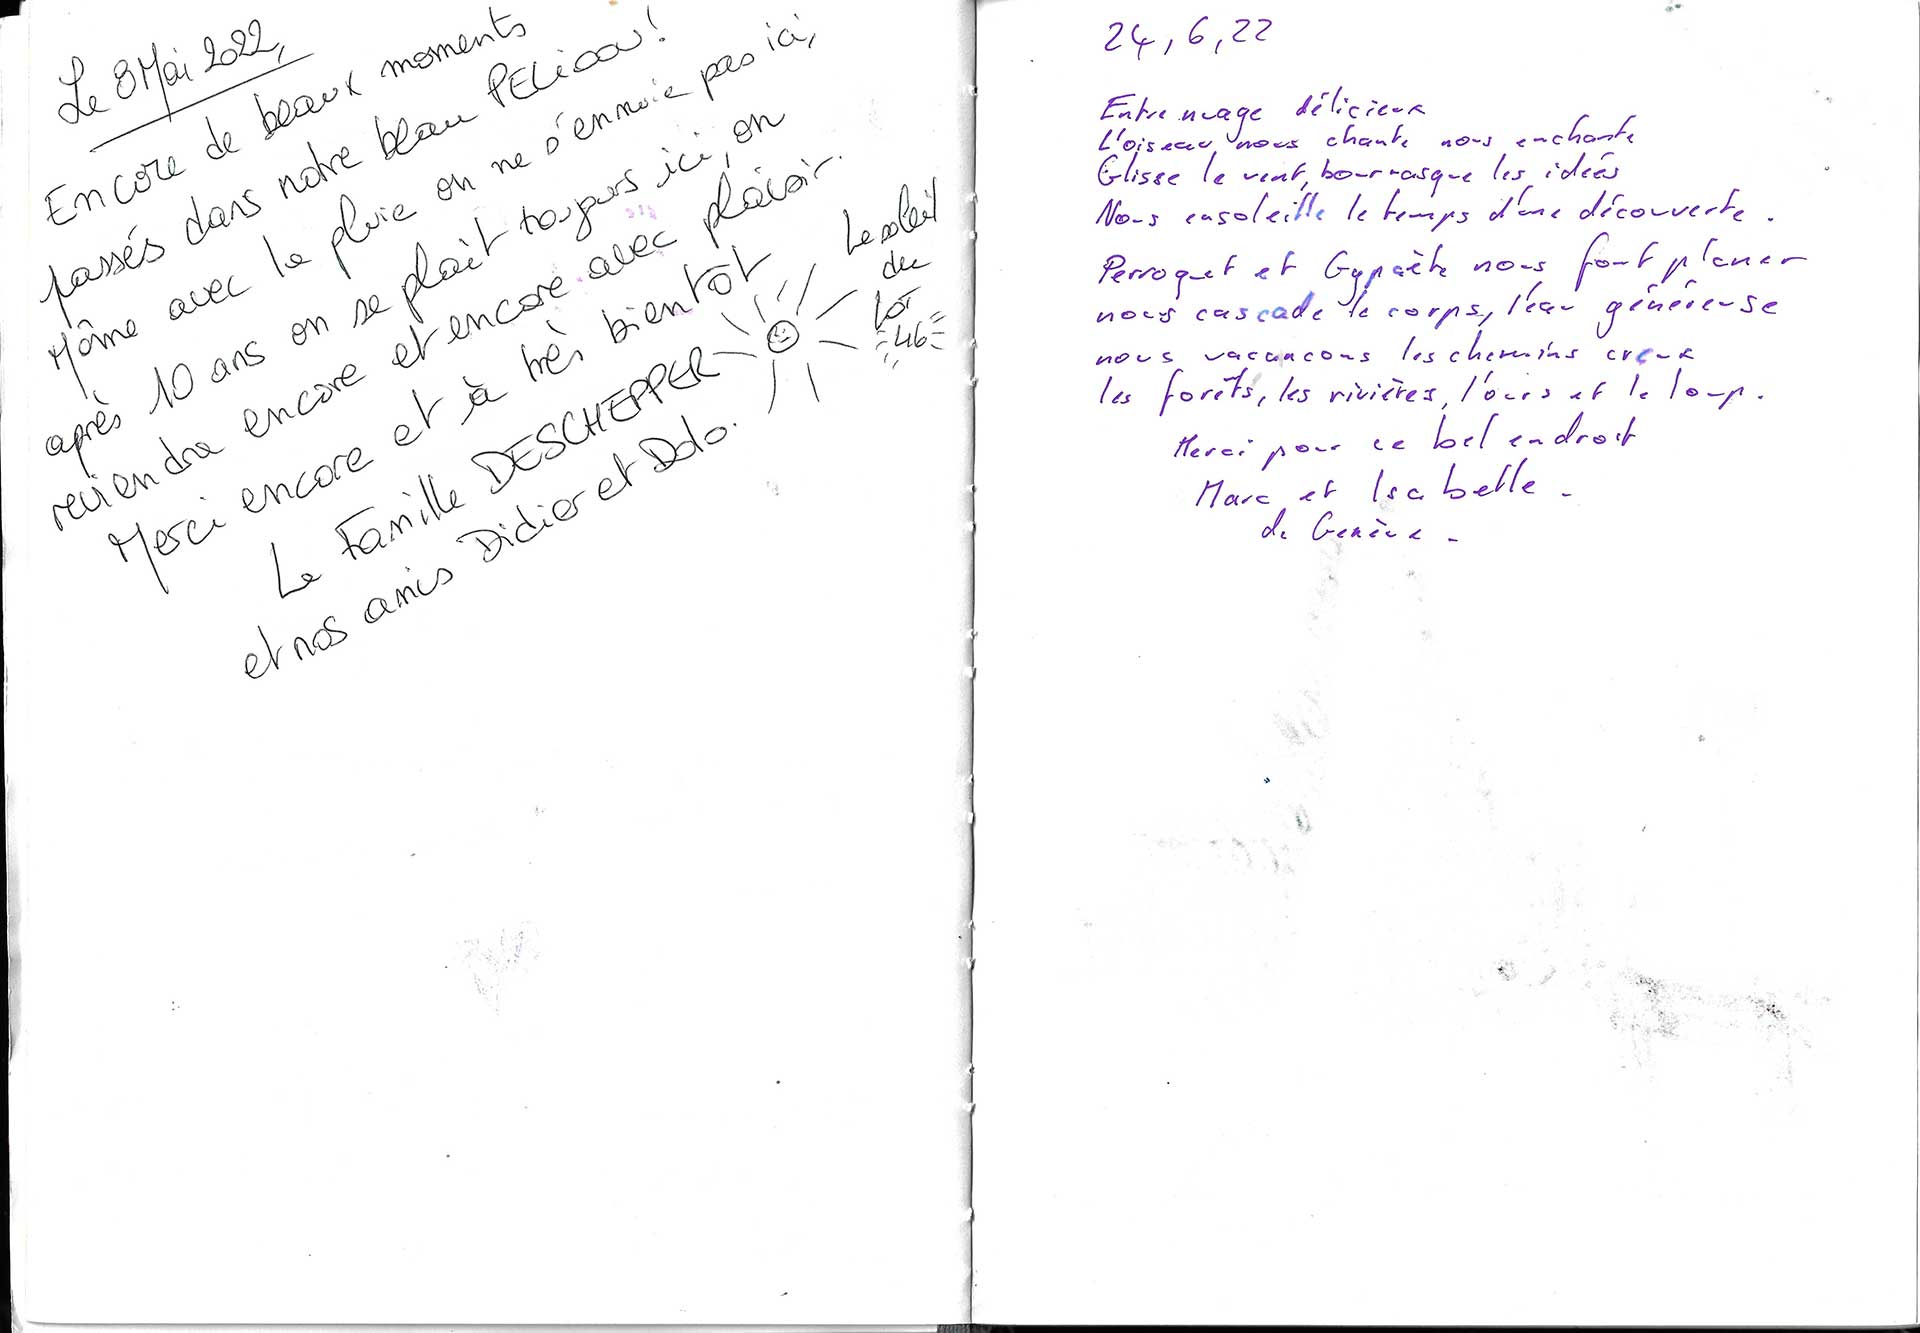 Le 8 Mai 2022,
Encore de beaux moments
passés dans notre beau PELICOU!
Même avec la pluie on ne s'ennuie pas ici,
après 10 ans on se plait toujours ici, on
reviendra encore et encore avec plaisir.
Merci encore et à très bientôt
La Famille DESCHEPPER
et nos amis Didier et Dolo.
Le soleil
du
Lot
46
24, 6, 22
Entre nuage délicieux
L'oiseau nous chante nous enchante
Glisse le vent, bourrasque les idées
Nous ensoleille le temps d'une découverte.
Perroquet et Gypaète nous font planer
nous cascade le corps, l'eau généreuse
nous vacancons les chemins creux
les forêts, les rivières, l'ours et le loup.
Merci pour ce bel endroit
Marc et Isabelle.
de Genève.